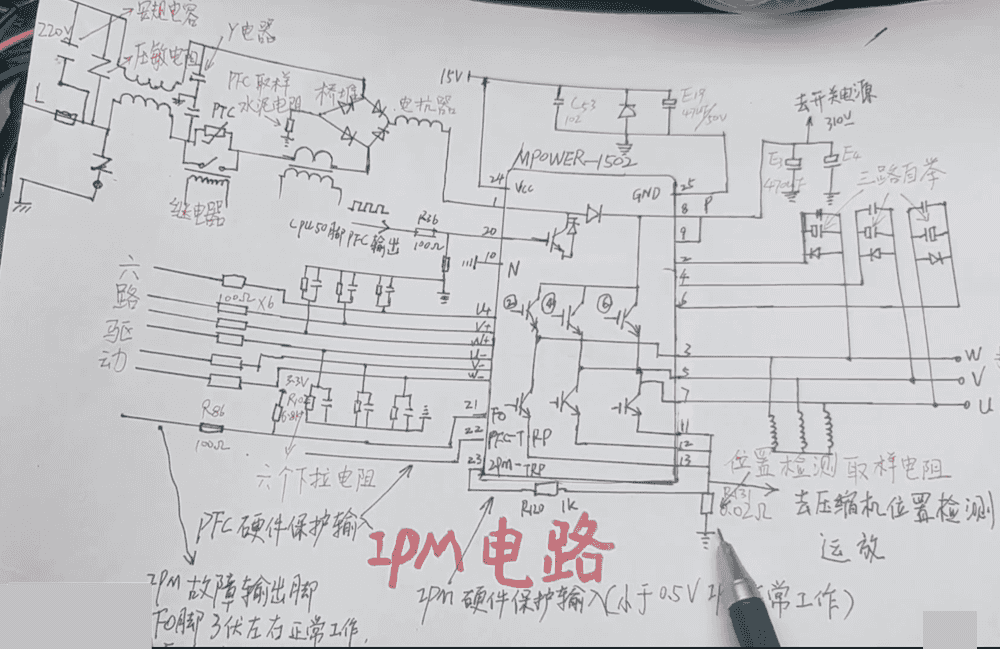 安规电容
220V
压敏电阻
Y电器
L
PTC
PFC取样
水泥电阻
桥堆
电抗器
继电器
15V
C53
102
E19
47UF/50V
去开关电源
310V
E3
470UF
E4
三路自举
MPOWER-1502
24
VCC
GND
25
1
8
P
9
CPU50脚PFC输出
R36
100Ω
20
10
N
2
4
6
六
路
驱
动
100Ω×6
U+
V+
W+
U-
V-
W-
②
④
⑥
3
W
5
V
7
U
3.3V
6.8K
R86
100Ω
21
FO
22
PFC-TRP
23
IPM-TRP
11
12
13
六个下拉电阻
R120
1K
位置检测取样电阻
R131
0.02Ω
去压缩机位置检测
运放
PFC硬件保护输入
IPM电路
IPM故障输出脚
FO脚3伏左右正常工作.
IPM硬件保护输入(小于0.5V IP 常工作)